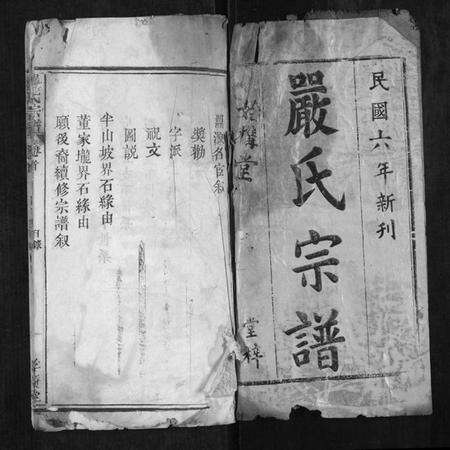 民國六年新刊
嚴氏宗譜
堂梓
名宦叙
獎勸
字派
祝文
圖説
半山坡界石緣由
董家壠界石緣由
願後裔續修宗譜叙